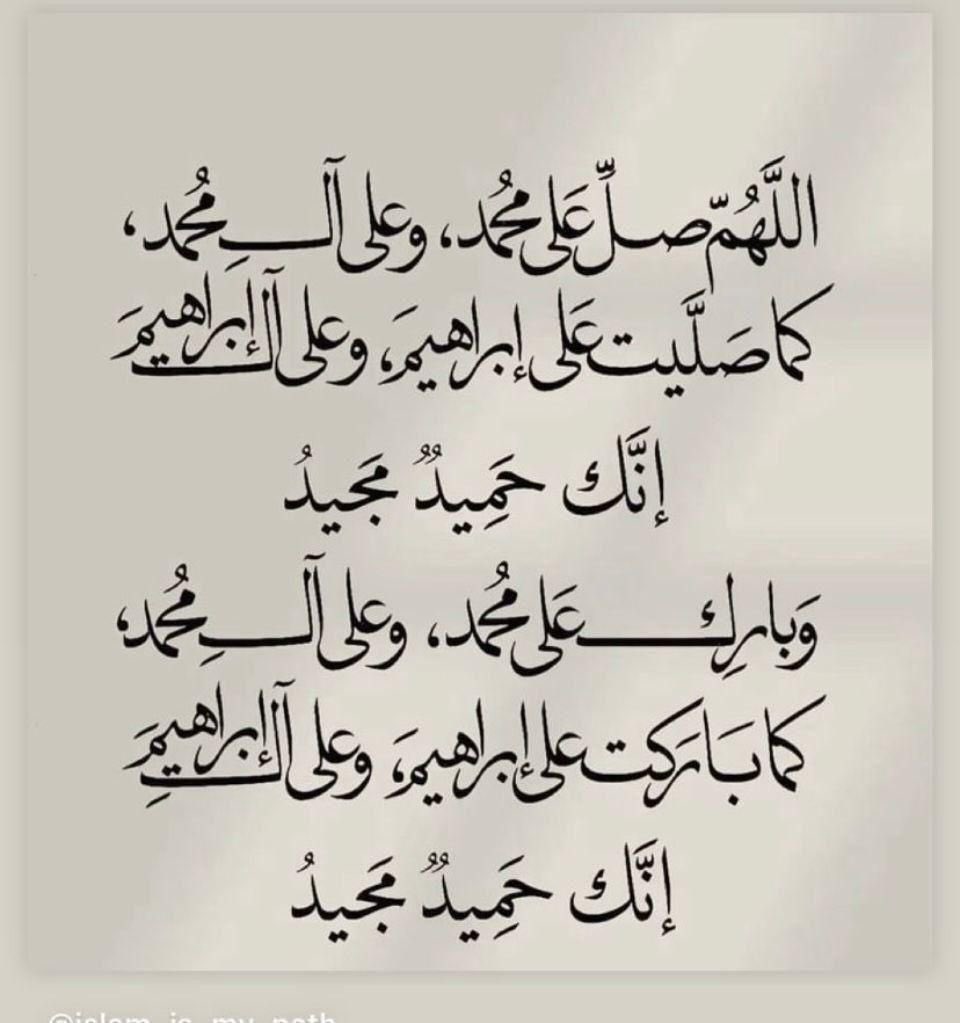 اللَّهُمّ صلِّ عَلى مُحمد، وعلى آلِ مُحمد،
كما صَلَّيت عَلى إبراهيمَ، وعلى آل إبراهيمَ
إنَّك حَمِيدٌ مَجيدُ
وَبارِك عَلى مُحمد، وعلى آلِ مُحمد،
كما بَارَكت على إبراهيمَ، وعلى آلِ إبراهيمَ
إنَّك حَمِيدٌ مَجيدُ
@islam_is_my_path